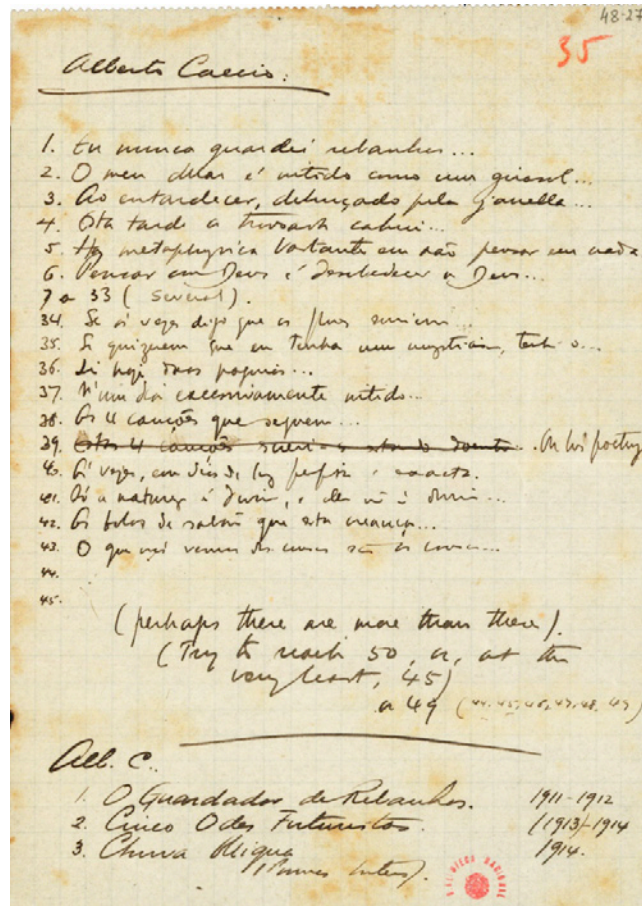 48-27
35
Alberto Caeiro:
1. Eu nunca guardei rebanhos...
2. O meu olhar é nitido como um girasol...
3. Ao entardecer, debruçado pela janella...
4. Esta tarde a trovoada cahiu...
5. Ha metaphysica bastante em não pensar em nada
6. Pensar em Deus é desobedecer a Deus...
7 a 33 (several).
34. Se ás vezes digo que as flores sorriem...
35. Se quizerem que eu tenha um mysticismo, tenho-o...
36. Li hoje duas paginas...
37. N'um dia excessivamente nitido...
38. As 4 canções que seguem...
39. Estas 4 canções escrevi-as estando doente... On his poetry
40. Ás vezes, em dias de luz perfeita e exacta.
41. Só a natureza é divina, e ella não é divina...
42. As bolas de sabão que esta creança...
43. O que nós vemos das cousas são as cousas...
44.
45.
(perhaps there are more than these).
(Try to reach 50, or, at the
very least, 45)
or 49 (44. 45, 46, 47. 48. 49)
Alb. C.
1. O Guardador de Rebanhos. 1911-1912
2. Cinco Odes Futuristas. (1913)-1914
3. Chuva Obliqua 1914.
(Poemas Inters).
BIBLIOTECA NACIONAL